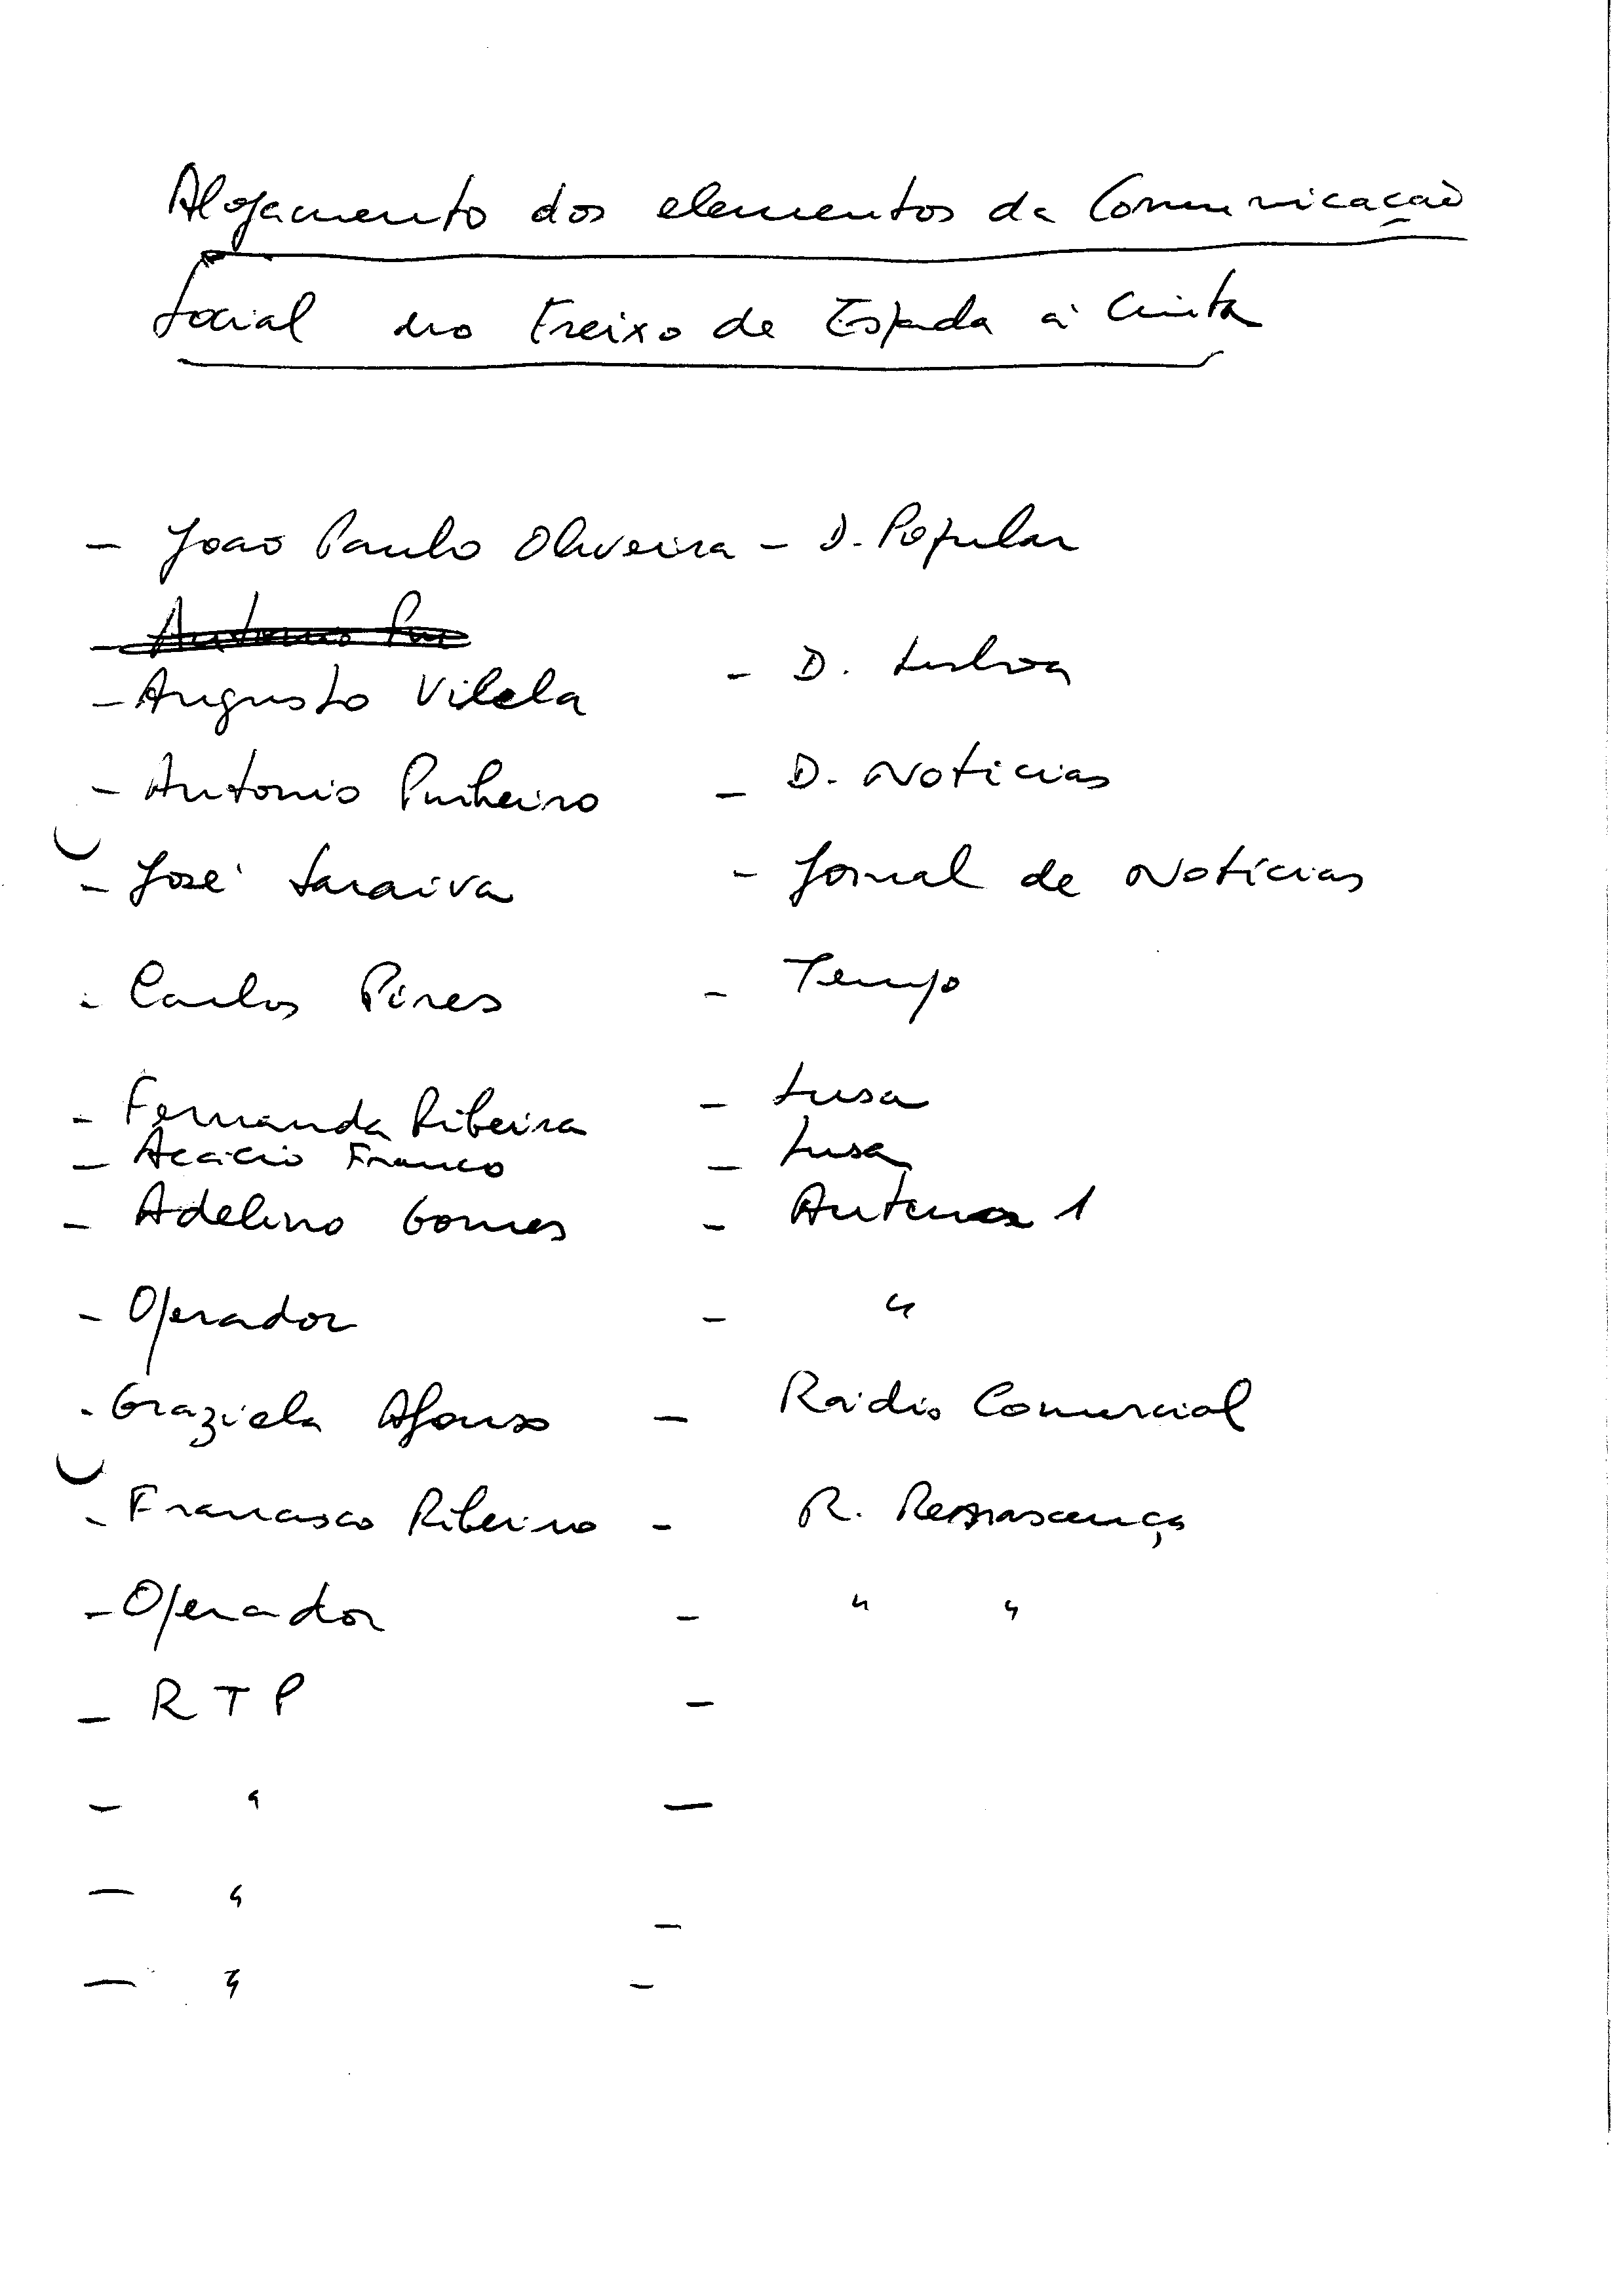 Alojamento dos elementos da Comunicação
Social no Freixo de Espada à Cinta
- João Paulo Oliveira - D. Popular
- Antonio Pin
- Augusto Vilela - D. Lisboa
- Antonio Pinheiro - D. Noticias
- José Saraiva - Jornal de Notícias
- Carlos Pires - Tempo
- Fernanda Ribeiro - Lusa
- Acácio Franco - Lusa
- Adelino Gomes - Antena 1
- Operador - "
- Graziela Afonso - Rádio Comercial
- Francisco Ribeiro - R. Renascença
- Operador - " "
- RTP -
- " -
- " -
- " -